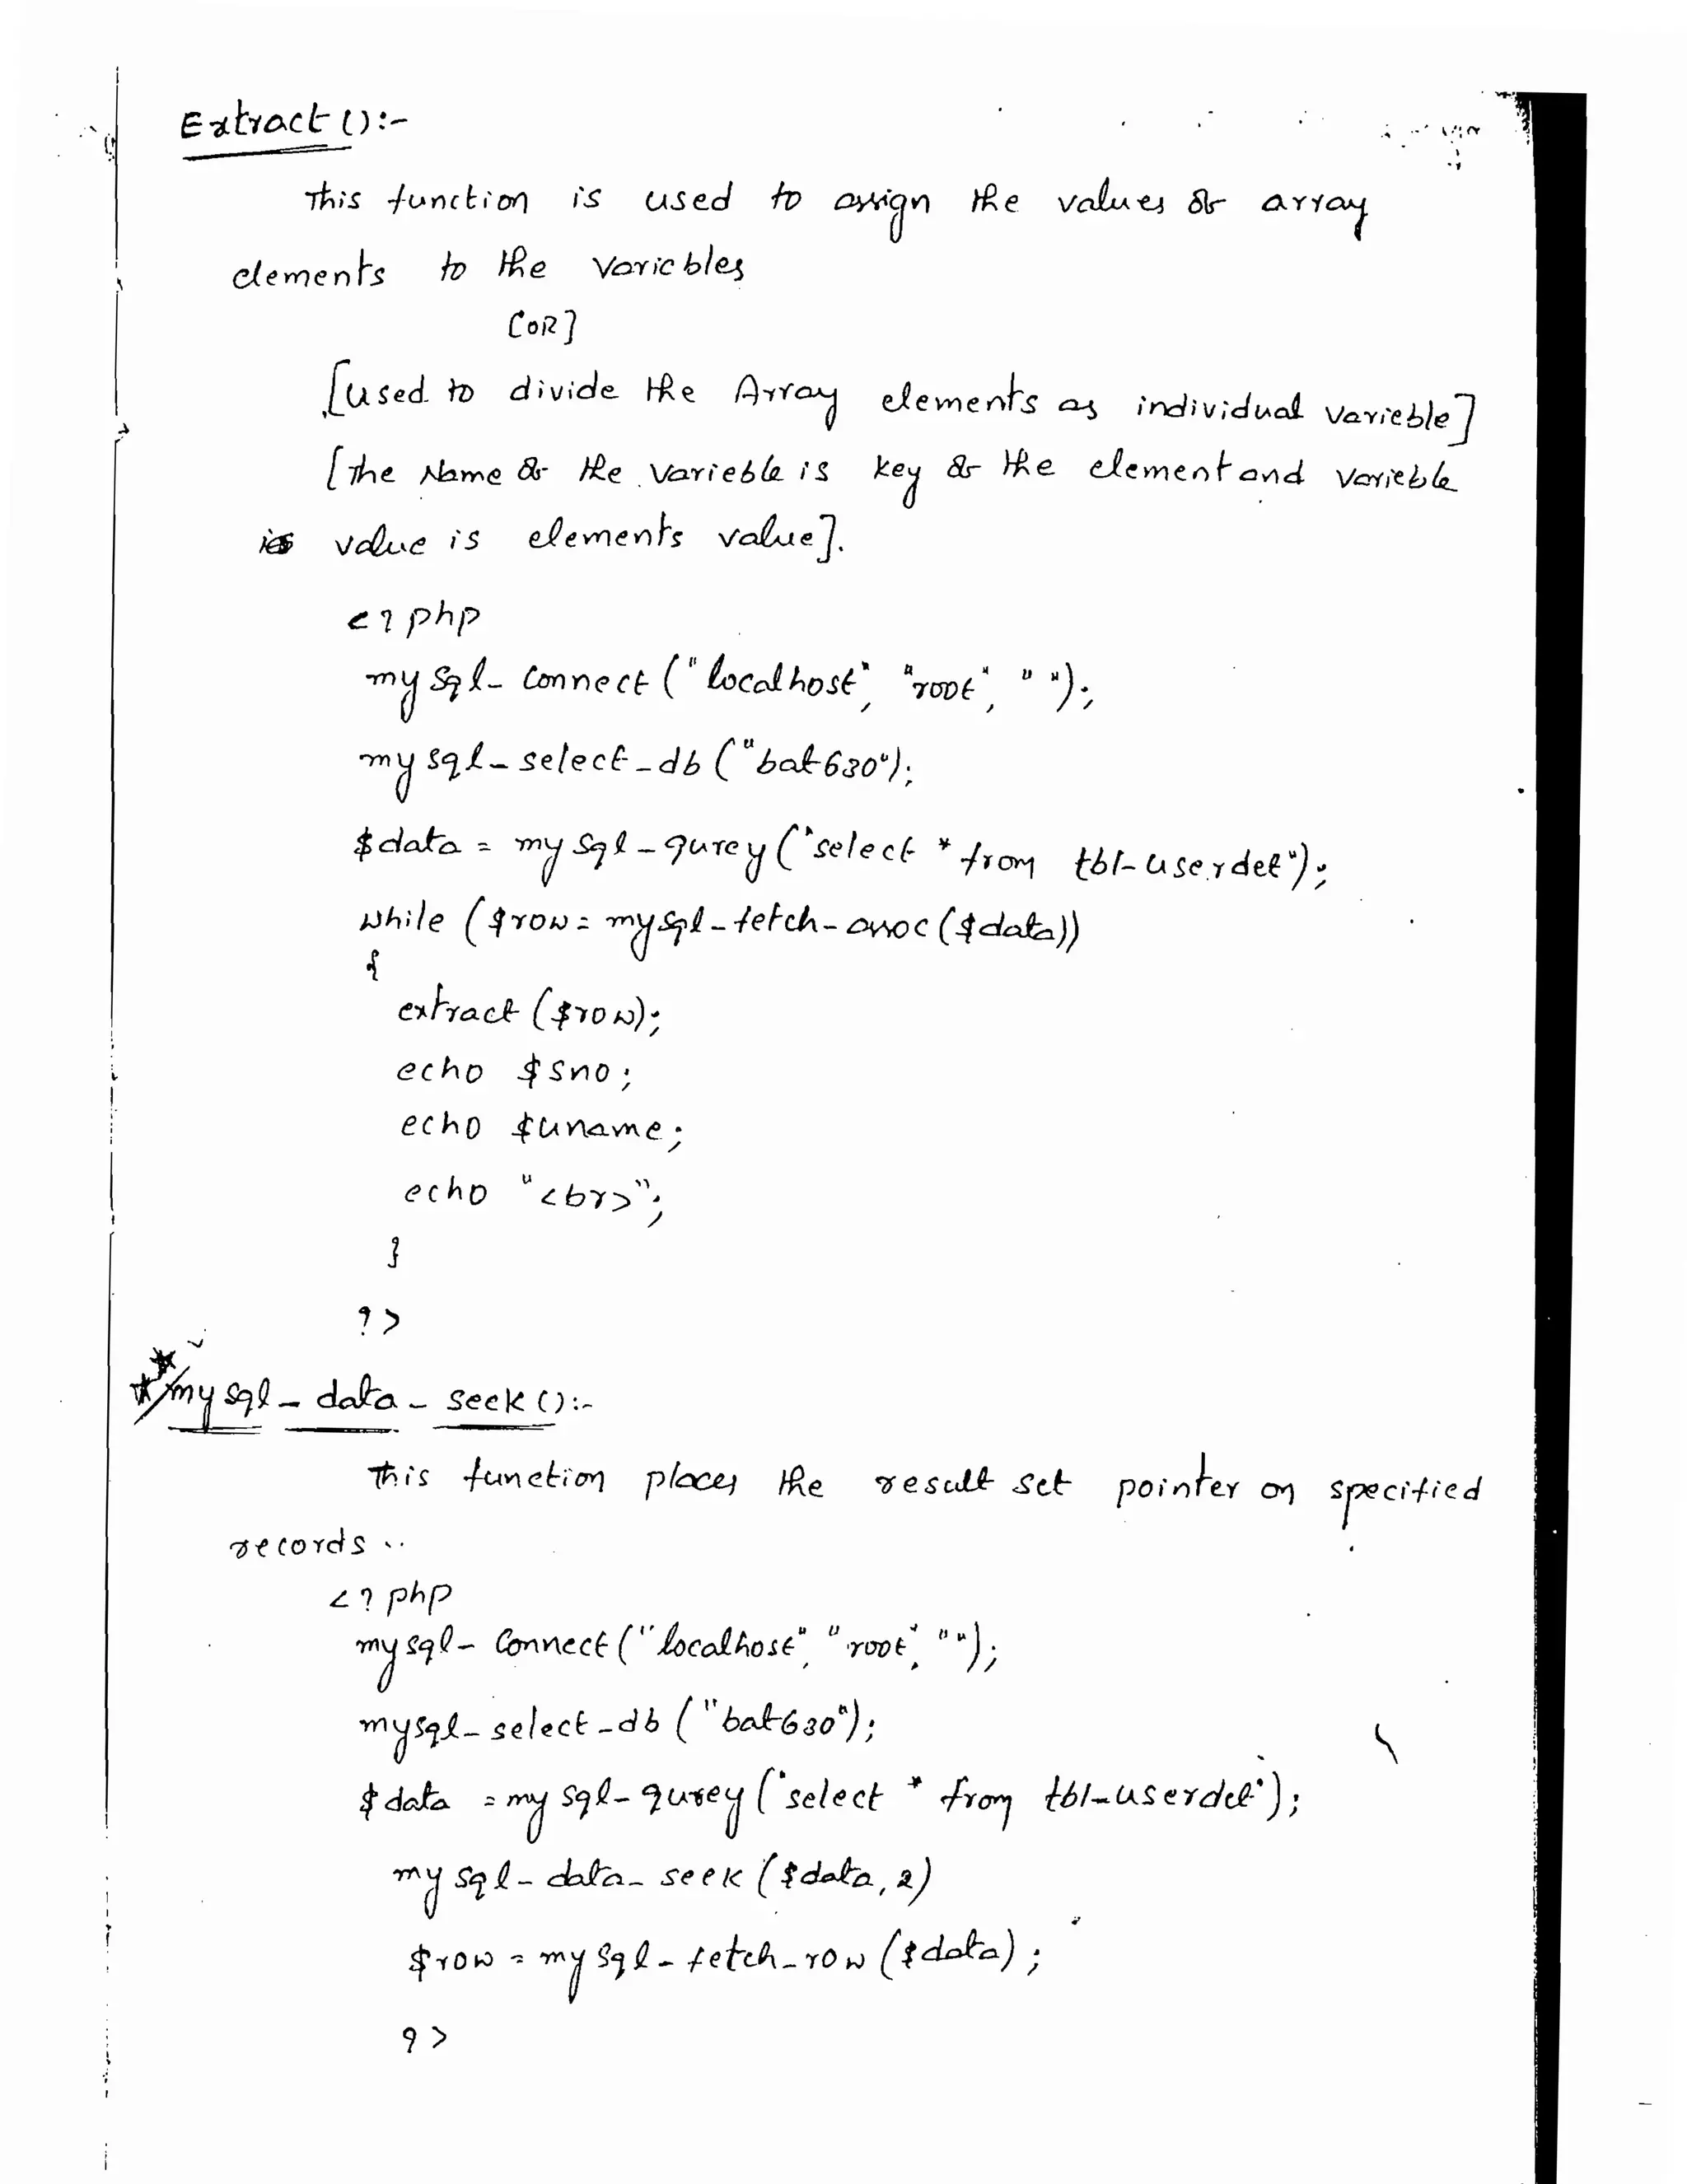 Extract():-
This function is used to assign the values of array
elements to the variables
[OR]
[used to divide the Array elements as individual varieble]
[The Name of the varieble is key of the element and varieble
value is elements value].
<?php
mysql_connect("localhost", "root", " ");
mysql_select_db("bat630");
$data = mysql_qurey("select * from tbl_userdet");
while ($row = mysql_fetch_assoc($data))
{
extract($row);
echo $sno;
echo $uname;
echo "<br>";
}
?>
mysql_data_seek():-
This function places the result set pointer on specified
records..
<?php
mysql_connect("localhost", "root", "");
mysql_select_db("bat630");
$data = mysql_qurey("select * from tbl_userdet");
mysql_data_seek($data, 2)
$row = mysql_fetch_row($data);
?>